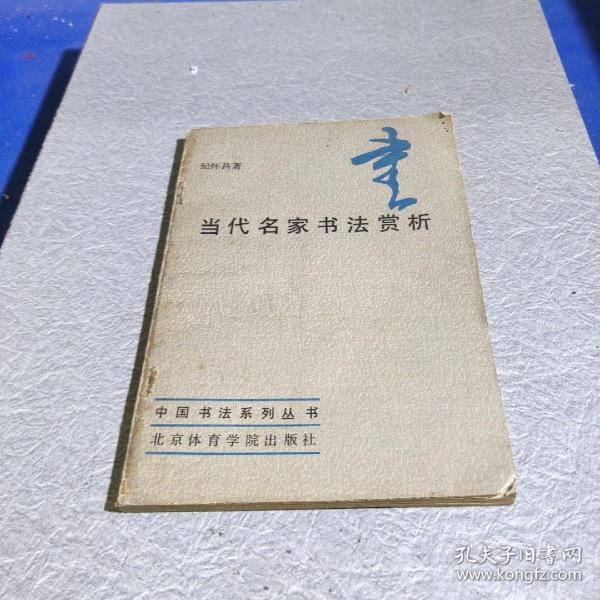 纪怀昌著
書
当代名家书法赏析
中国书法系列丛书
北京体育学院出版社
孔夫子旧书网
www.kongfz.com